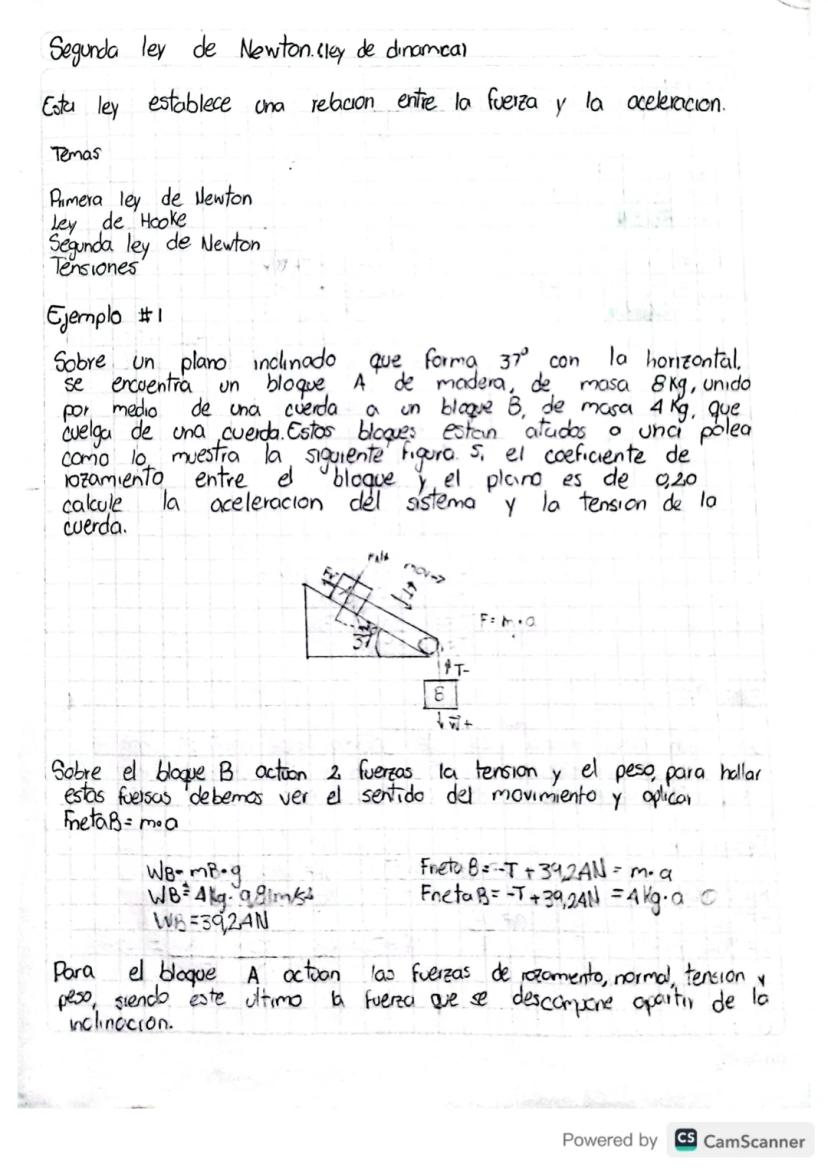 Segunda ley de Newton.(ley de dinamica)
Esta ley establece una relacion entre la fuerza y la aceleracion.
Temas
Primera ley de Newton
Ley de Hooke
Segunda ley de Newton
Tensiones
Ejemplo #1
Sobre un plano inclinado que forma 37° con la horizontal,
se encuentra un bloque A de madera, de masa 8 Kg, unido
por medio de una cuerda a un bloque B, de masa 4 Kg, que
cuelga de una cuerda. Estos bloques estan atados a una polea
como lo muestra la siguiente figura. Si el coeficiente de
rozamiento entre el bloque y el plano es de 0,20
calcule la aceleracion del sistema y la tension de la
cuerda.
mov
Fr
37
F= m·a
T-
B
w+
Sobre el bloque B actuan 2 fuerzas la tension y el peso, para hallar
estas fuersas debemos ver el sentido del movimiento y aplicar
FnetaB= m·a
WB= mB·g
WB= 4kg· 9,81m/s²
WB=39,24N
Fneta B= -T + 39,24N = m·a
FnetaB= -T+39,24N =4Kg·a
Para el bloque A actuan las fuerzas de rozamento, normal, tension y
peso, siendo este ultimo la fuerza que se descompone apartir de la
inclinacion.
Powered by CS CamScanner